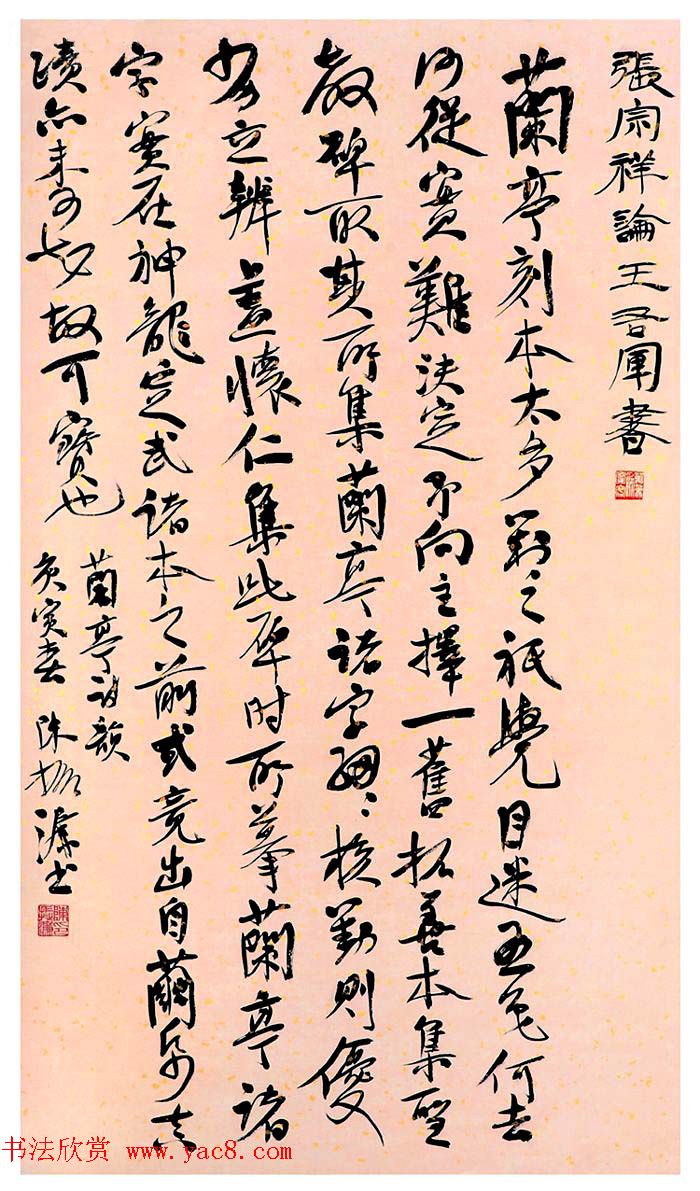 張宗祥論王右軍書
蘭亭刻本太多對之祇覺目迷五色何去
何從實難決定予向主擇一舊拓善本集聖
教碑取其所集蘭亭諸字細〻校勘則優
劣立辨盖懷仁集此碑时所摹蘭亭諸
字實在神龍定武諸本之前或竟出自繭帋真
蹟亦未可知故可寶也
蘭亭诗韻
庚寅春 陳振濂书
书法欣赏 www.yac8.com